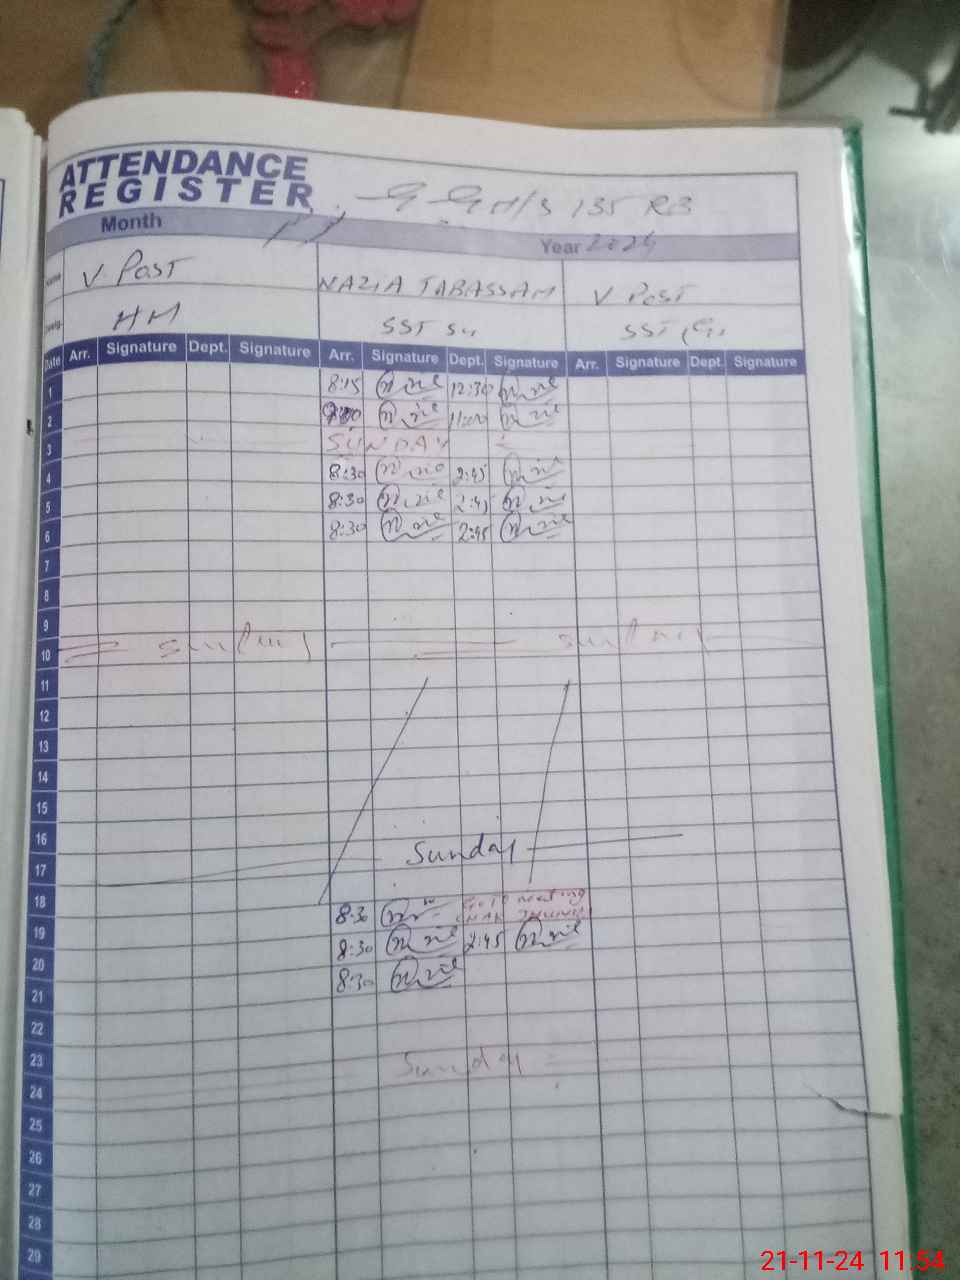 ATTENDANCE
REGISTER G G H/S 135 RB
Month 11 Year 2024
Name V. Post NAZIA TABASSAM V Post
HM SST SST
Date Arr. Signature Dept. Signature Arr. Signature Dept. Signature Arr. Signature Dept. Signature
1 8:15 12:30
2 11:00
3 SUNDAY
4 8:30 2:45
5 8:30 2:45
6 8:30 2:45
7
8
9
10 Sunday Sunday
11
12
13
14
15
16
17 Sunday
18
19 8:30 meeting
20 8:30 2:45
21 8:30
22
23
24 Sunday
25
26
27
28
29
21-11-24 11:54